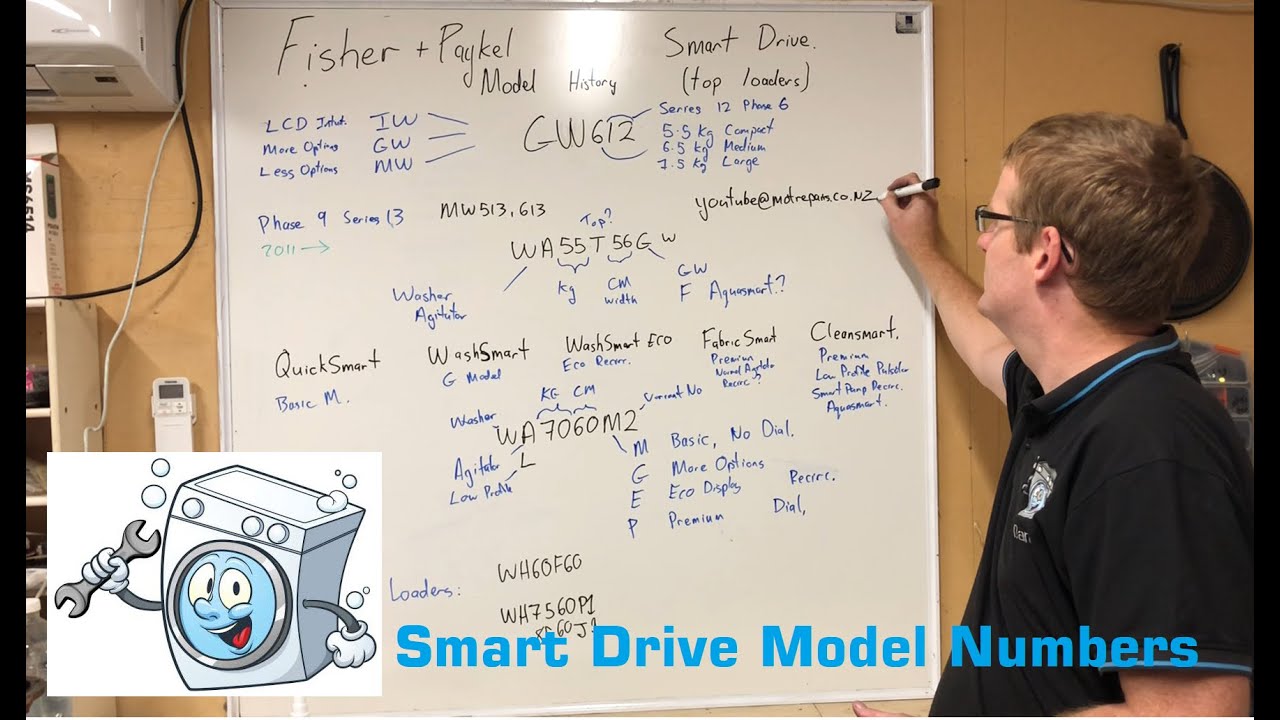 Fisher + Paykel Smart Drive.
Model History (top loaders)
LCD Intuit. IW
More Options GW
Less Options MW
GW612
Series 12 Phase 6
5.5 kg Compact
6.5 kg Medium
7.5 kg Large
Phase 9 Series 13 MW513, 613
2011 →
youtube@mdtrepairs.co.NZ
Top?
WA55T56G W
kg CM width
GW
F Aquasmart?
Washer
Agitator
QuickSmart
Basic M.
WashSmart
G Model
WashSmart ECO
Eco Recirc.
FabricSmart
Premium
Normal Agitator
Recirc ??
Cleansmart.
Premium
Low Profile Pulsator
Smart Pump Recirc.
Aquasmart.
KG CM
Variant No
Washer
WA7060M2
L
Agitator
Low Profile
M Basic, No Dial.
G More Options
E Eco Display Recirc.
P Premium Dial,
Loaders:
WH60F60
WH7560P1
8560J
Smart Drive Model Numbers